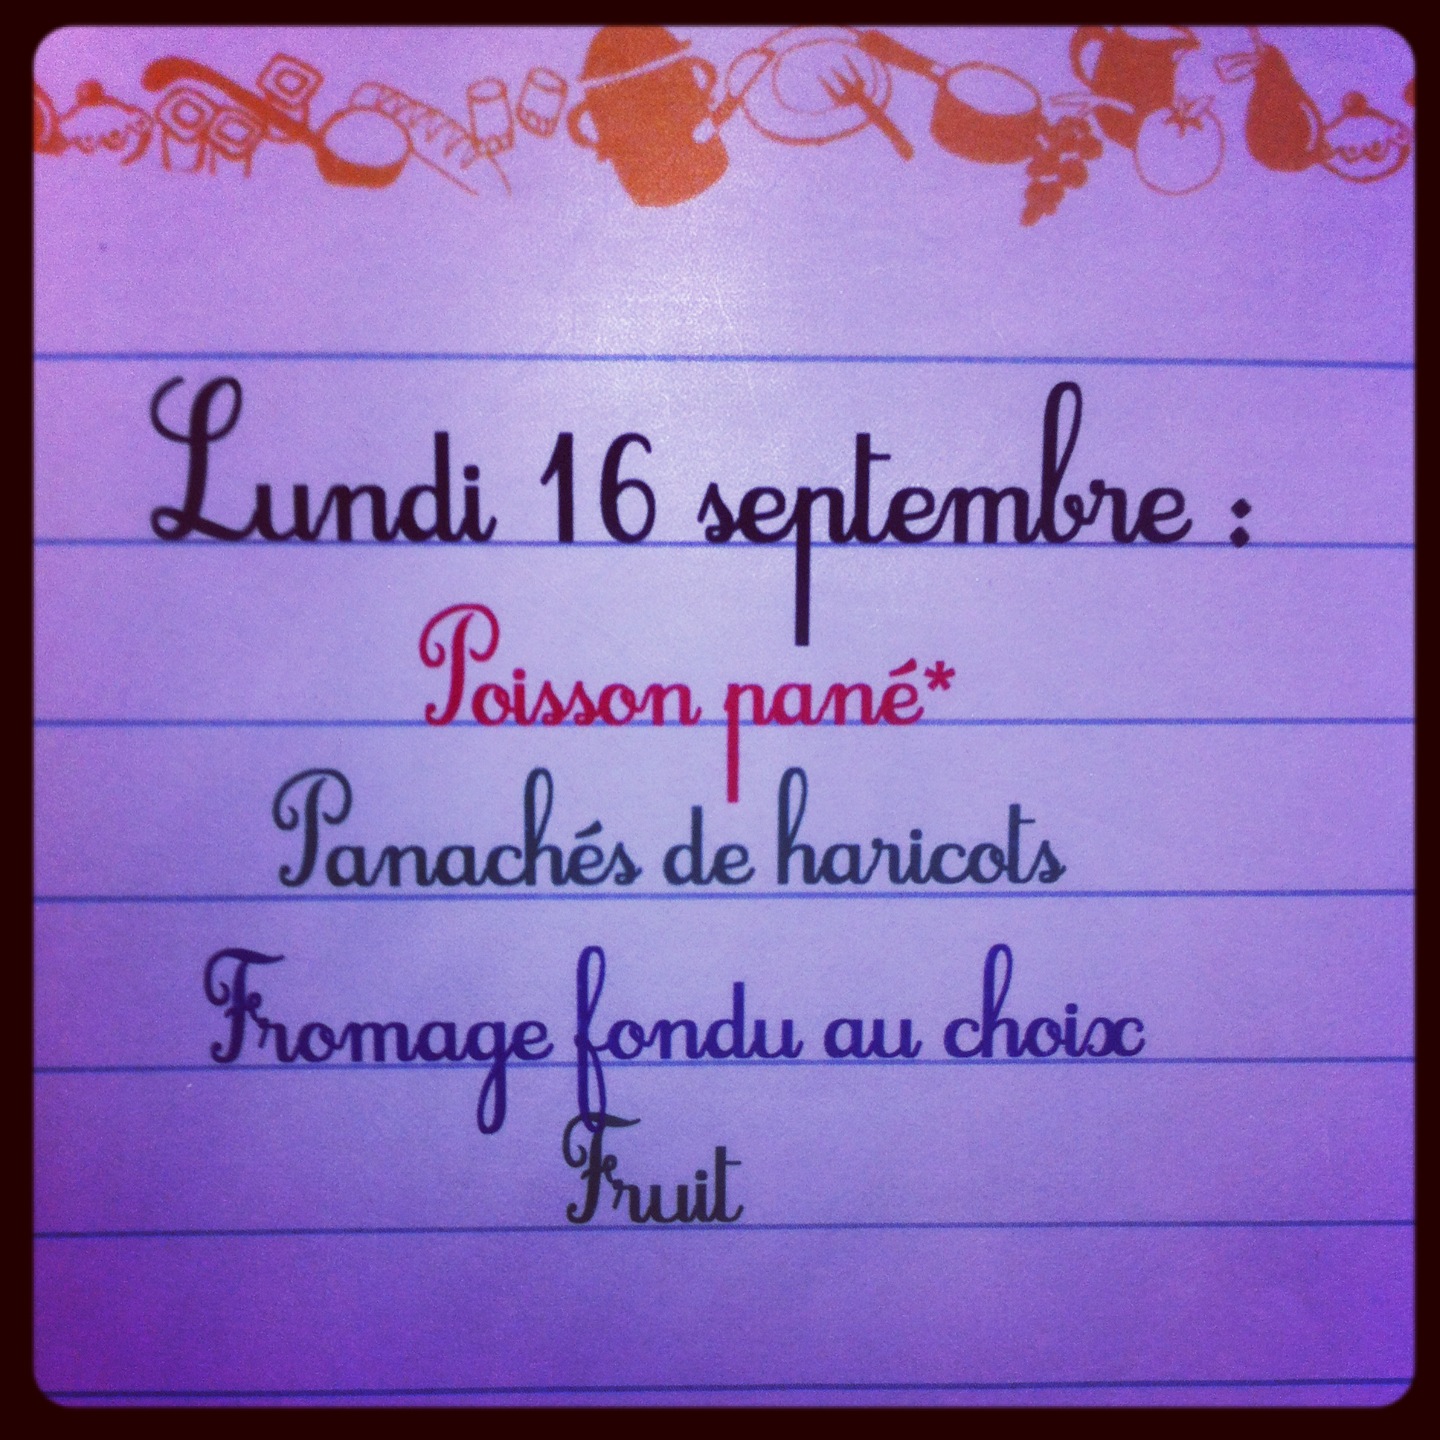 Lundi 16 septembre :
Poisson pané*
Panachés de haricots
Fromage fondu au choix
Fruit